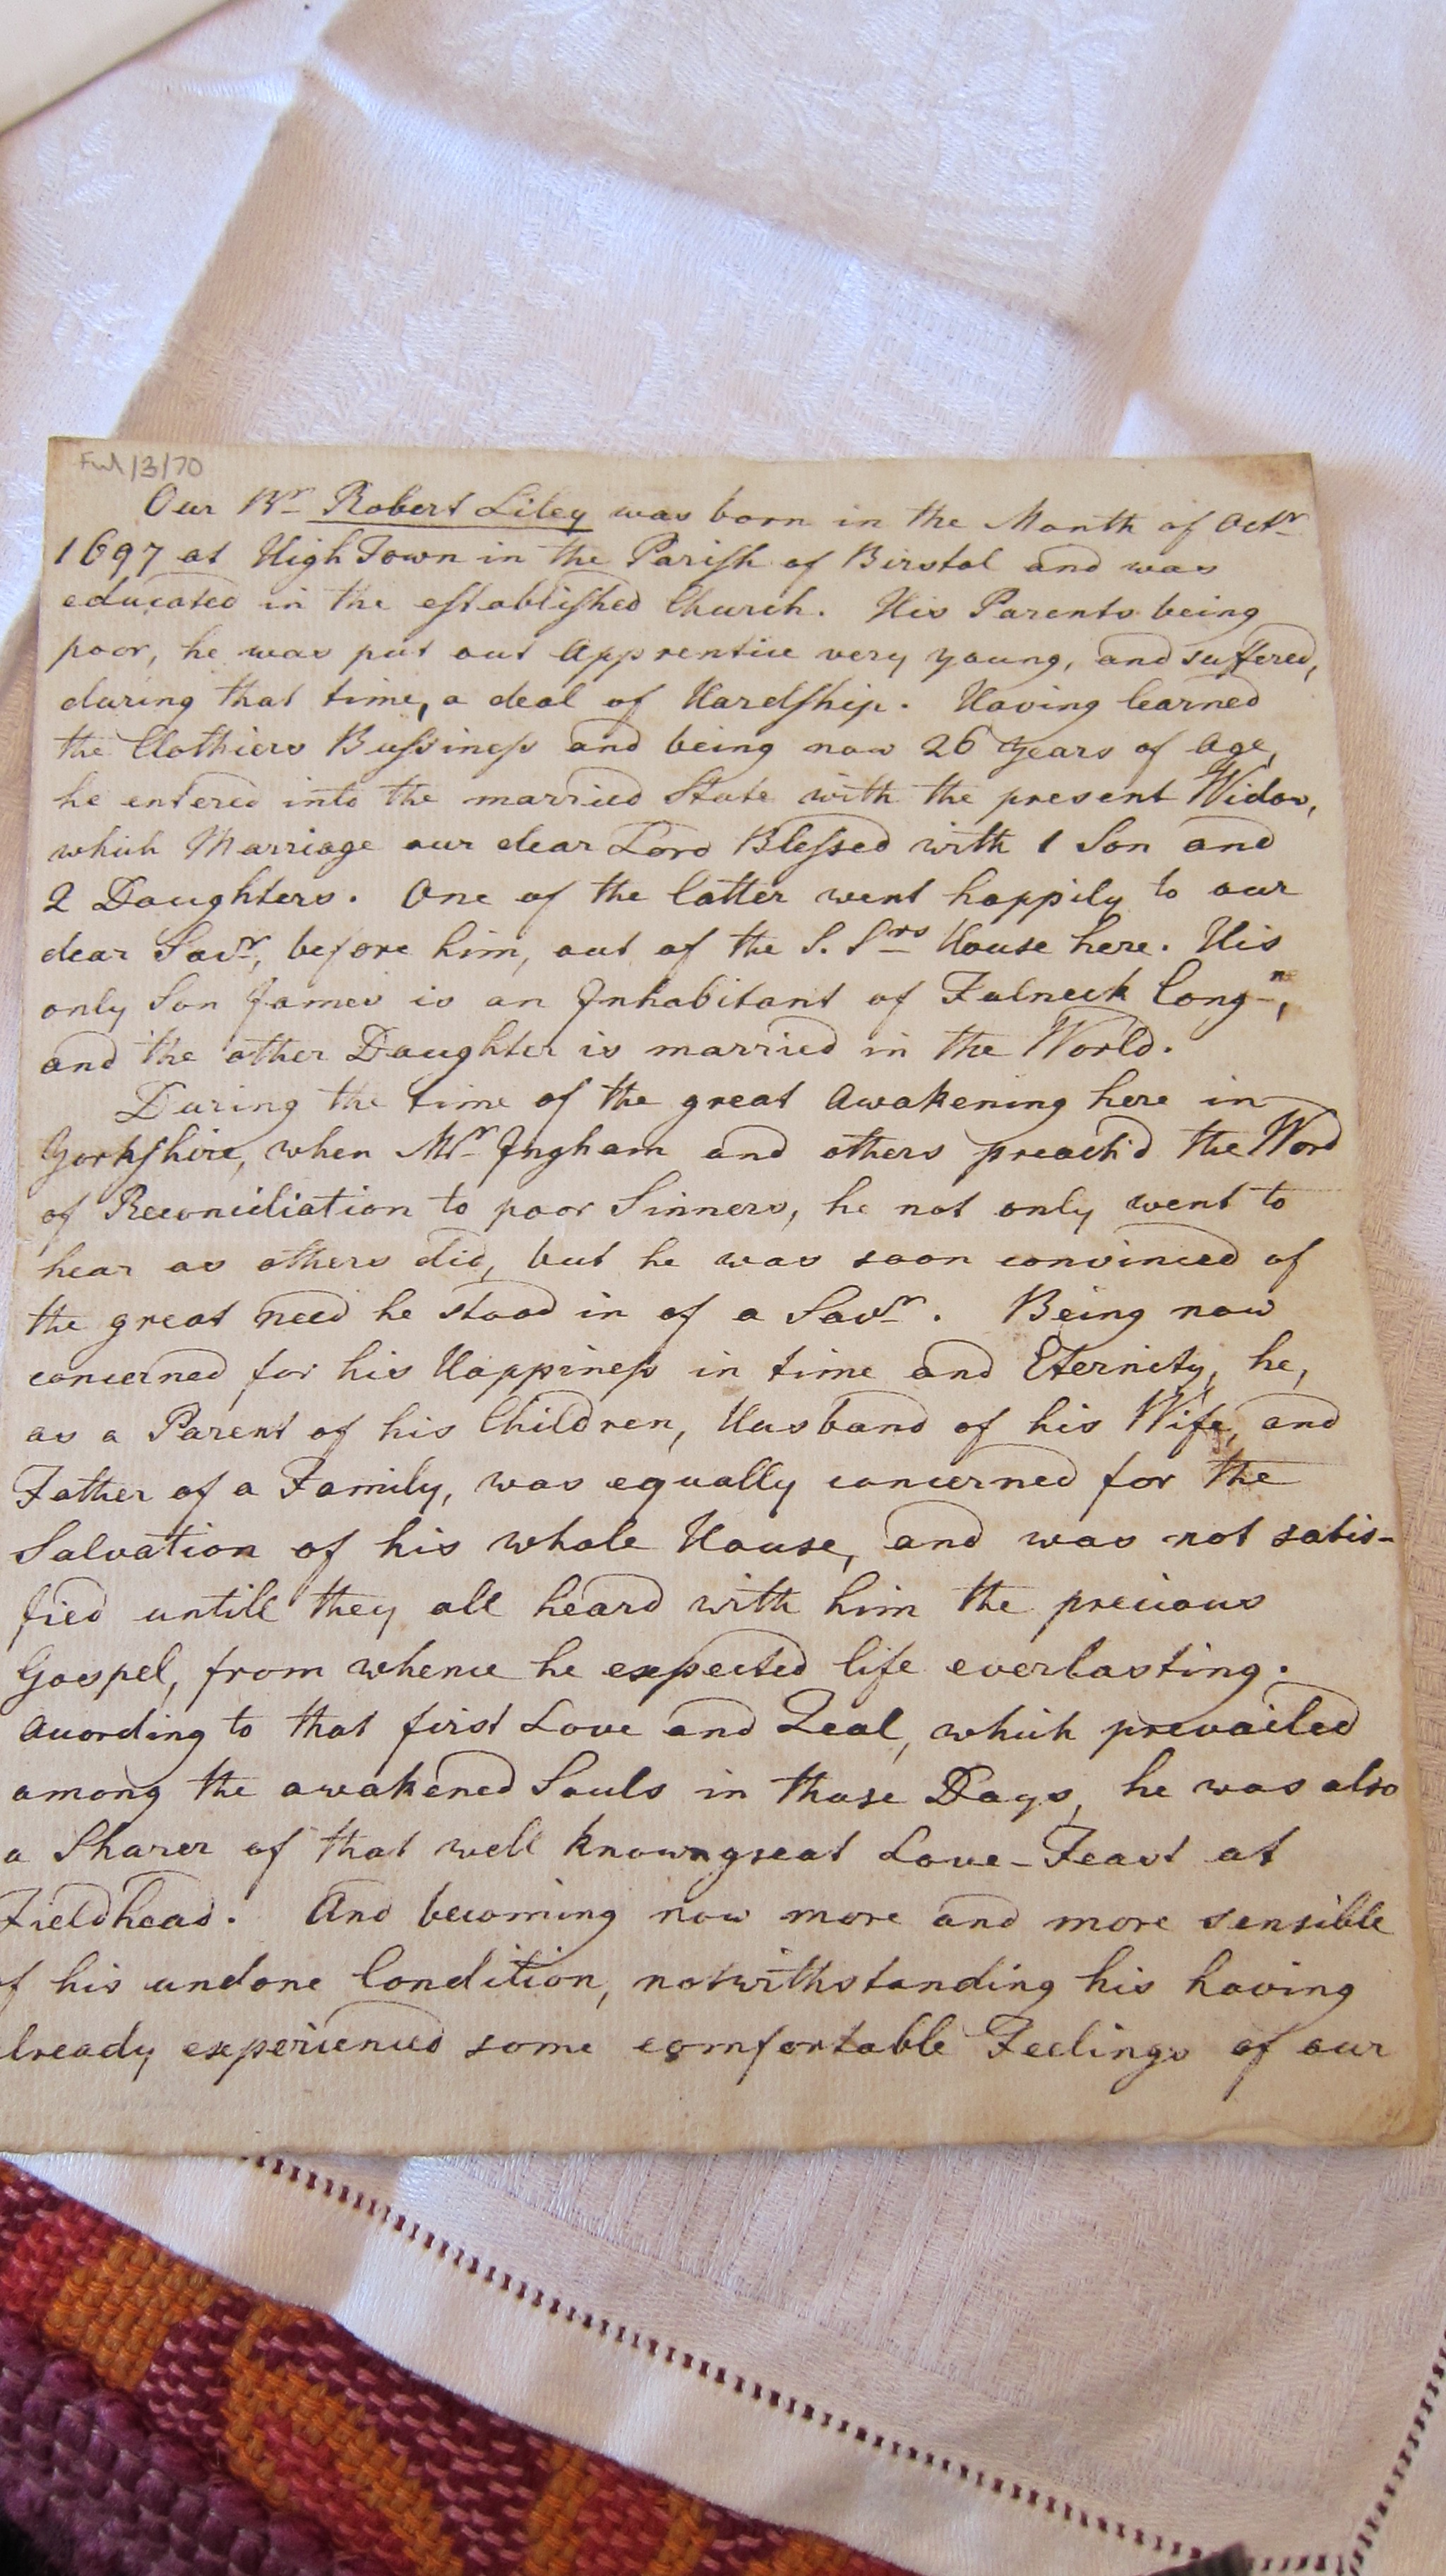 Ful/3/70
Our Br Robert Liley was born in the Month of Octr
1697 at High Town in the Parish of Birstal and was
educated in the established Church. His Parents being
poor, he was put out Apprentice very young, and suffered,
during that time, a deal of Hardship. Having learned
the Clothiers Bussiness and being now 26 Years of Age,
he entered into the married State with the present Widow,
which Marriage our dear Lord Blessed with 1 Son and
2 Daughters. One of the latter went happily to our
dear Savr, before him, out of the S. Srs House here. His
only Son James is an Inhabitant of Fulneck Congn,
and the other Daughter is married in the World.
During the time of the great Awakening here in
Yorkshire, when Mr Ingham and others preach'd the Word
of Reconciliation to poor Sinners, he not only went to
hear as others did, but he was soon convinced of
the great need he stood in of a Savr. Being now
concerned for his Happiness in time and Eternity, he,
as a Parent of his Children, Husband of his Wife, and
Father of a Family, was equally concerned for the
Salvation of his whole House, and was not satis-
fied untill they all heard with him the precious
Gospel, from whence he expected life everlasting.
According to that first Love and Zeal, which prevailed
among the awakened Souls in those Days, he was also
a Sharer of that well known great Love-Feast at
Fieldhead. And becoming now more and more sensible
of his undone Condition, notwithstanding his having
already experienced some comfortable Feelings of our